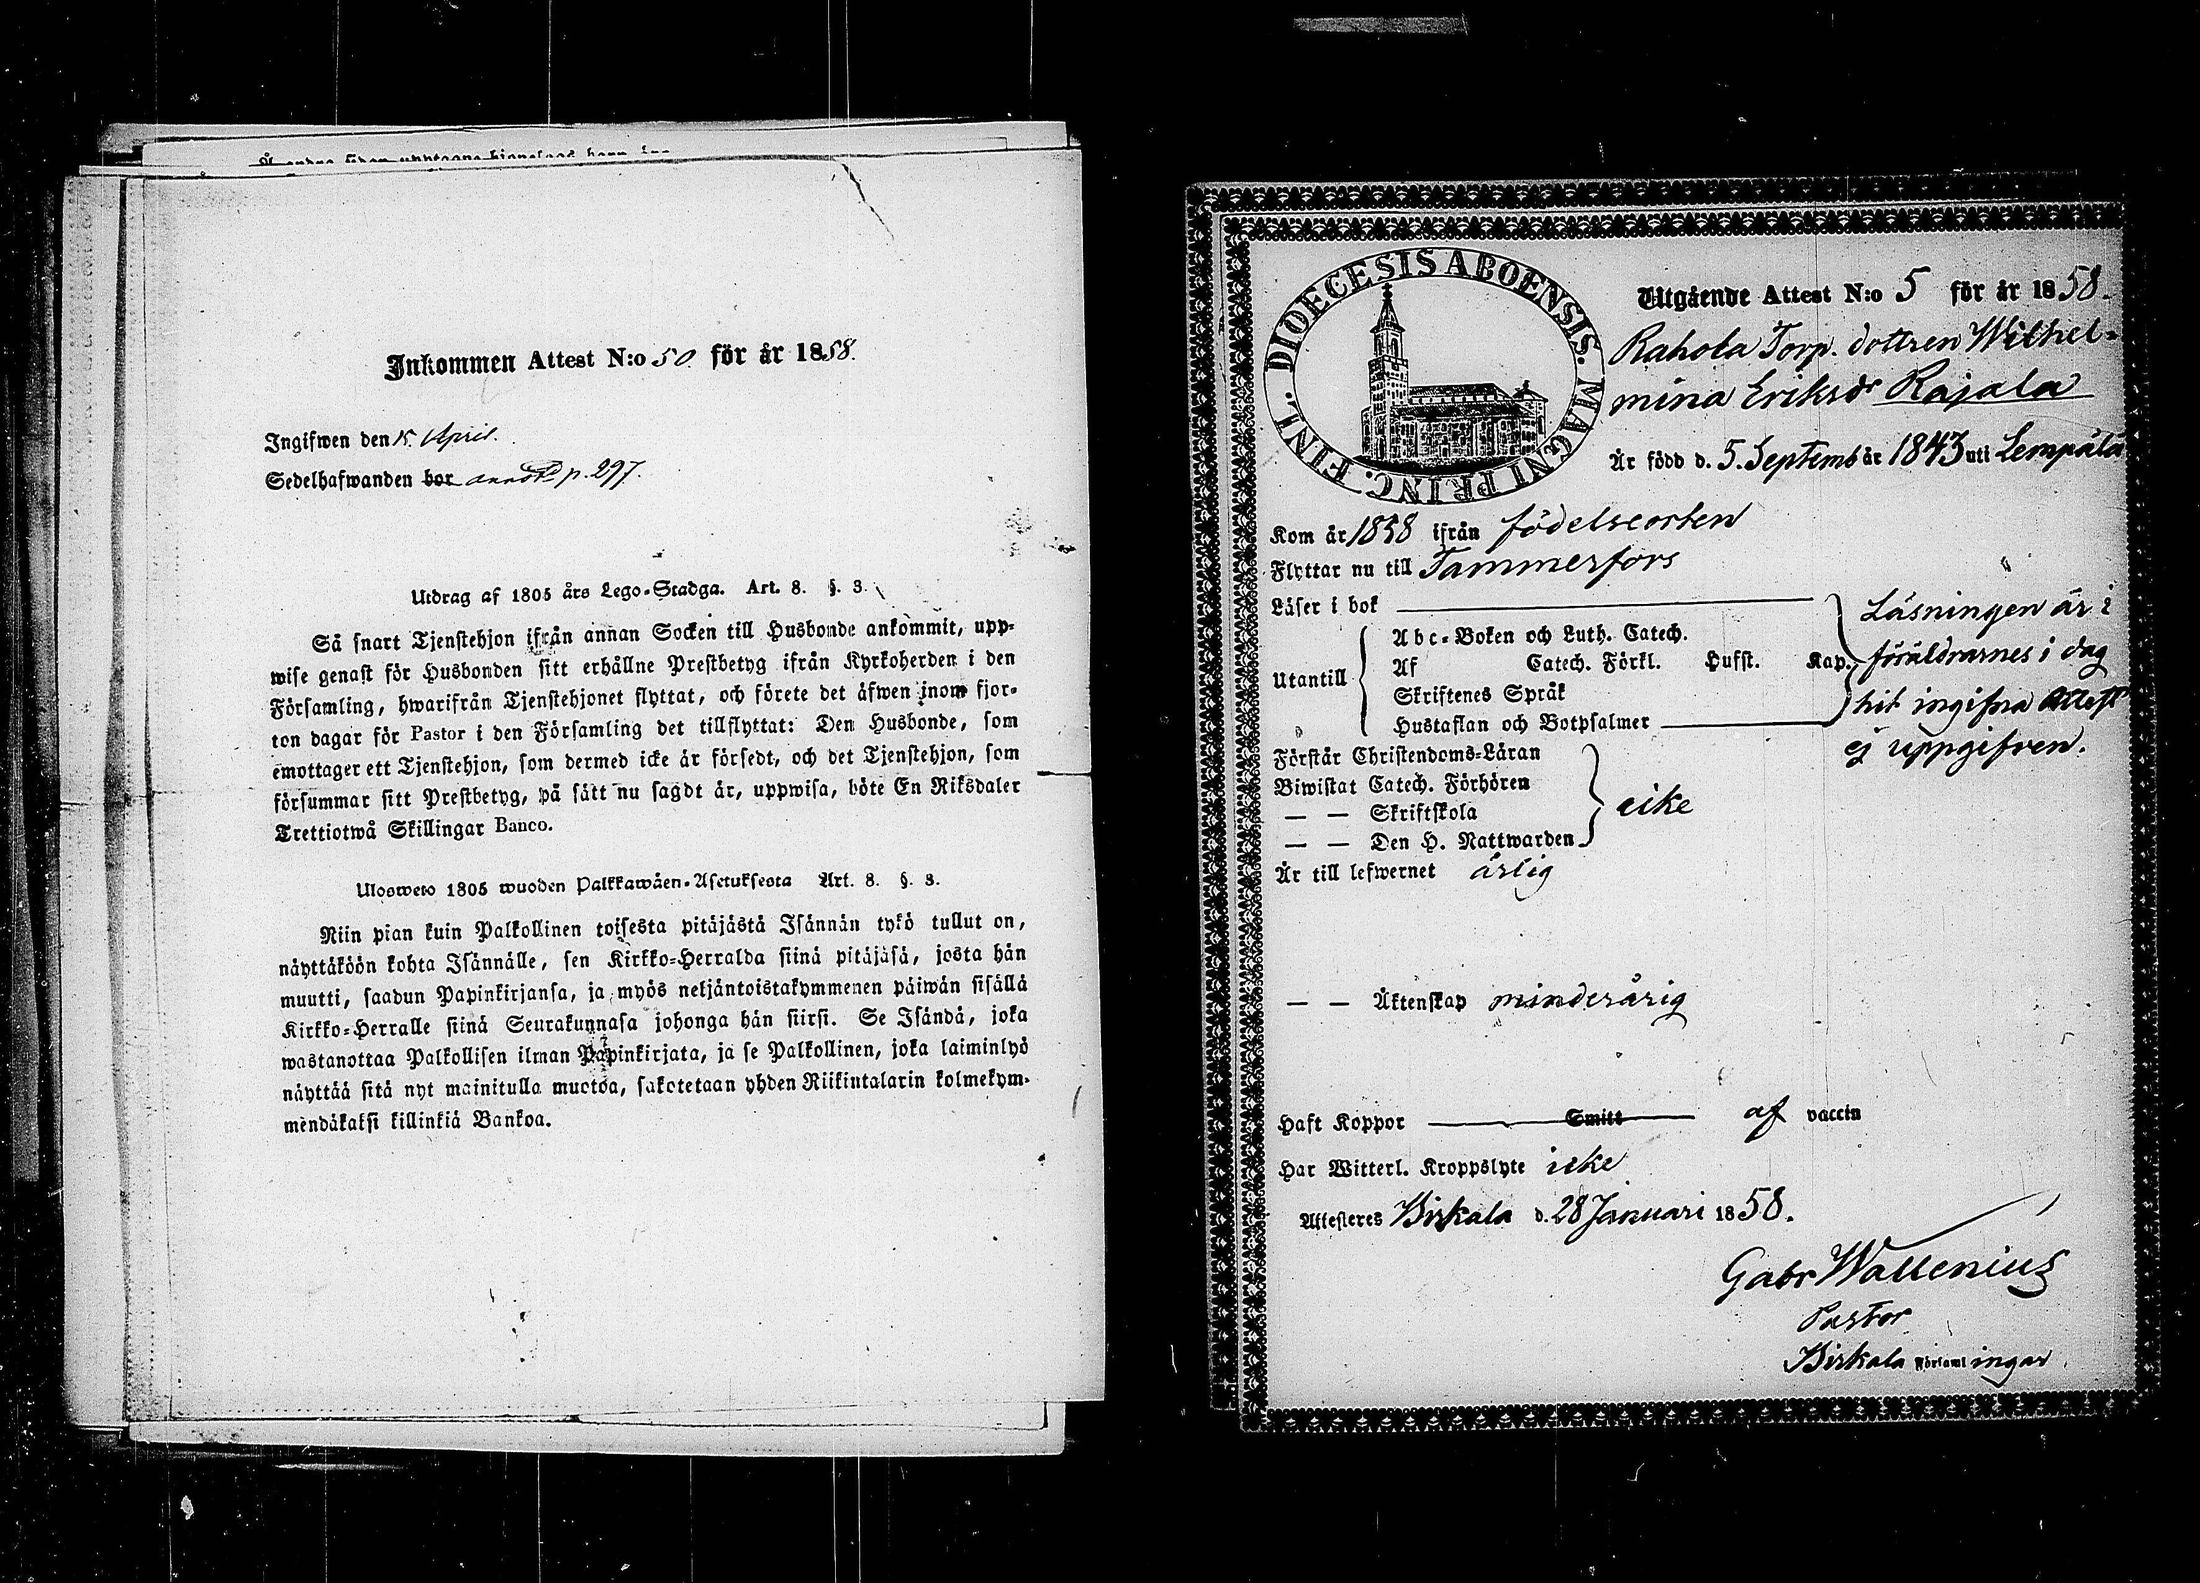 Inkommen Attest N:o 50 för år 1858.
Ingifwen den 15 April.
Sedelhafwanden bor annot p. 297.
Utdrag af 1805 års Lego-Stadga. Art. 8. §. 3.
Så snart Tjenstehjon ifrån annan Socken till Husbonde ankommit, upp-
wise genast för Husbonden sitt erhållne Prestbetyg ifrån Kyrkoherden i den
Församling, hwarifrån Tjenstehjonet flyttat, och förete det äfwen inom fjor-
ton dagar för Pastor i den Församling det tillflyttat: Den Husbonde, som
emottager ett Tjenstehjon, som dermed icke är försedt, och det Tjenstehjon, som
försummar sitt Prestbetyg, på sätt nu sagdt är, uppwisa, böte En Riksdaler
Trettiotwå Skillingar Banco.
Uloswето 1805 wuoden Palkkawäen-Asetuksesta Art. 8. §. 3.
Niin pian kuin Palkollinen toisesta pitäjästä Isännän tykö tullut on,
näyttäköön kohta Isännälle, sen Kirkko-Herralda siinä pitäjäsä, josta hän
muutti, saadun Papinkirjansa, ja myös neljäntoistakymmenen päiwän sisällä
Kirkko-Herralle siinä Seurakunnasa johonga hän siirsi. Se Isändä, joka
wastanottaa Palkollisen ilman Papinkirjata, ja se Palkollinen, joka laiminlyö
näyttää sitä nyt mainitulla muotoa, sakotetaan yhden Riikintalarin kolmekym-
mendäkaksi killinkiä Bankoa.
DIOECESIS ABOENSIS. MAGNI PRINC. FINL.
Utgående Attest N:o 5 för år 1858.
Rahola Torp. dottren Wilhel-
mina Eriksdr Rajala
Är född d. 5. Septemb år 1843 uti Lempäla
Kom år 1858 ifrån födelseorten
Flyttar nu till Tammerfors
Läser i bok
Utantill
Abc-Boken och Luth. Catech.
Af Catech. Förkl. Hufst. Kap.
Skriftenes Språk
Hustaflan och Botpsalmer
Läsningen är i
föräldrarnes i dag
hit ingifna Attest
ej uppgifven.
Förstår Christendoms-Läran
Biwistat Catech. Förhören
— — Skriftskola
— — Den H. Nattwarden
icke
Är till lefwernet ärlig
— — Äktenskap minderårig
Haft Koppor Smitt af vaccin
Har Witterl. Kroppslyte icke
Attesteres Birkala d. 28 Januari 1858.
Gabr Wallenius
Pastor
Birkala Församl ingar